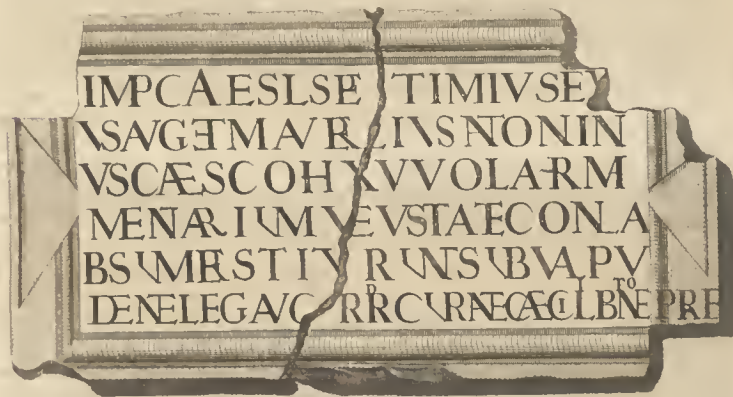 IMPCAESLSE TIMIVSEV
VSAVGETMAVRELIVSANTONIN
VSCAESCOHXVVOLARM
MENARIVMVEVSTAECONLA
BSVMRESTIV RVNTSVBVALPV
DENELEGAVC RRDRCVRANTECAECILBNETOEPRE